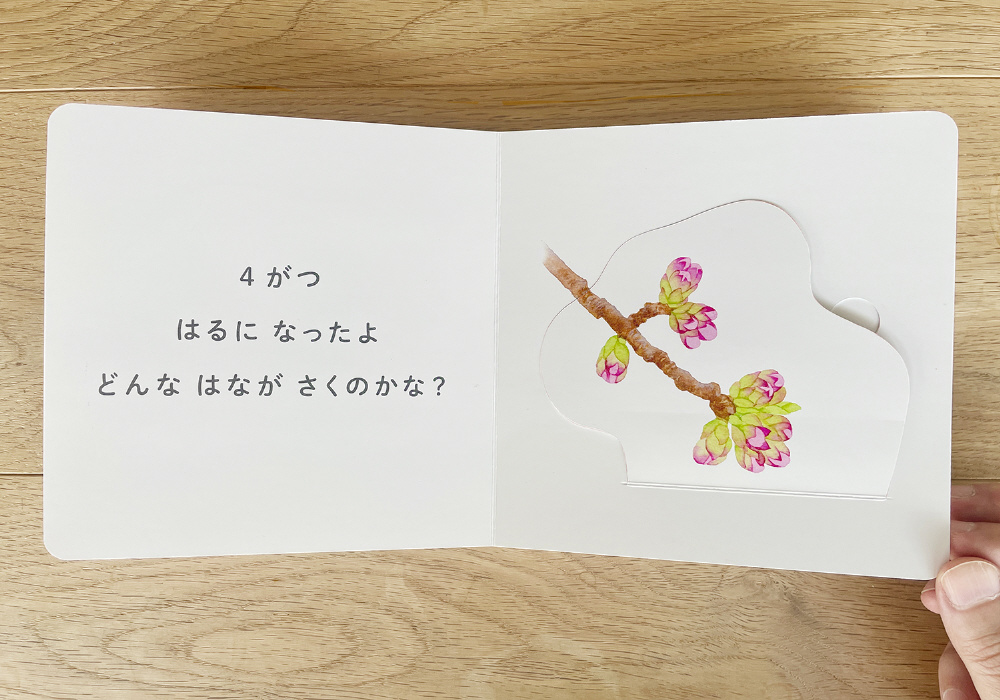 4 がつ
はるに なったよ
どんな はなが さくのかな?